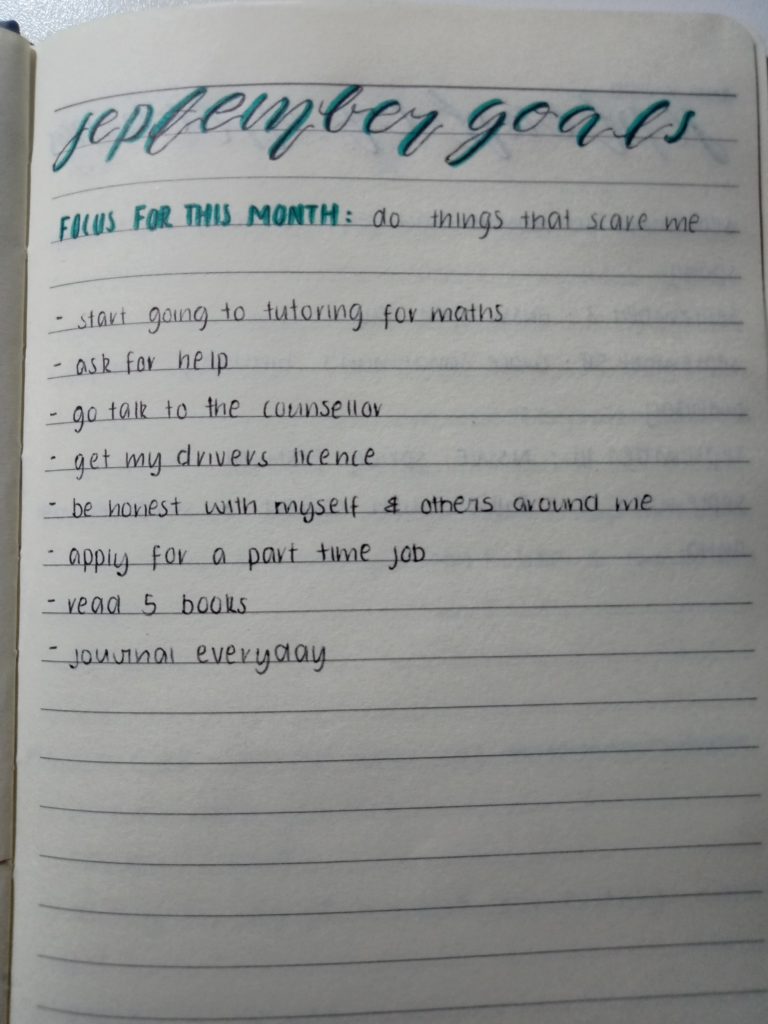 september goals
FOCUS FOR THIS MONTH: do things that scare me
- start going to tutoring for maths
- ask for help
- go talk to the counsellor
- get my drivers licence
- be honest with myself & others around me
- apply for a part time job
- read 5 books
- journal everyday